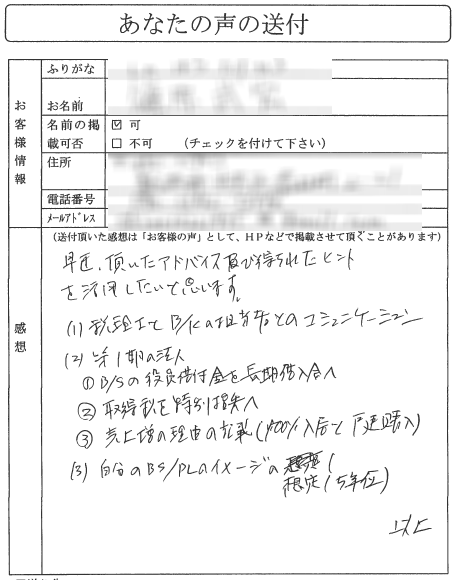 あなたの声の送付
お客様情報
ふりがな
お名前
名前の掲載可否
☑ 可
□ 不可 (チェックを付けて下さい)
住所
電話番号
ﾒｰﾙｱﾄﾞﾚｽ
感想
(送付頂いた感想は「お客様の声」として、HPなどで掲載させて頂ぐことがあります)
早速、頂いたアドバイス及び得られたヒント
を活用したいと思います。
(1) 税理士とB/Kの担当者とのコミュニケーション
(2) 第1期の法人
① B/Sの役員借付金を長期借入金へ
② 取得税を特別損失へ
③ 売上増の理由の記載(100%入居と戸建購入)
(3) 自分のBS/PLのイメージの
想定(5年位)
以上